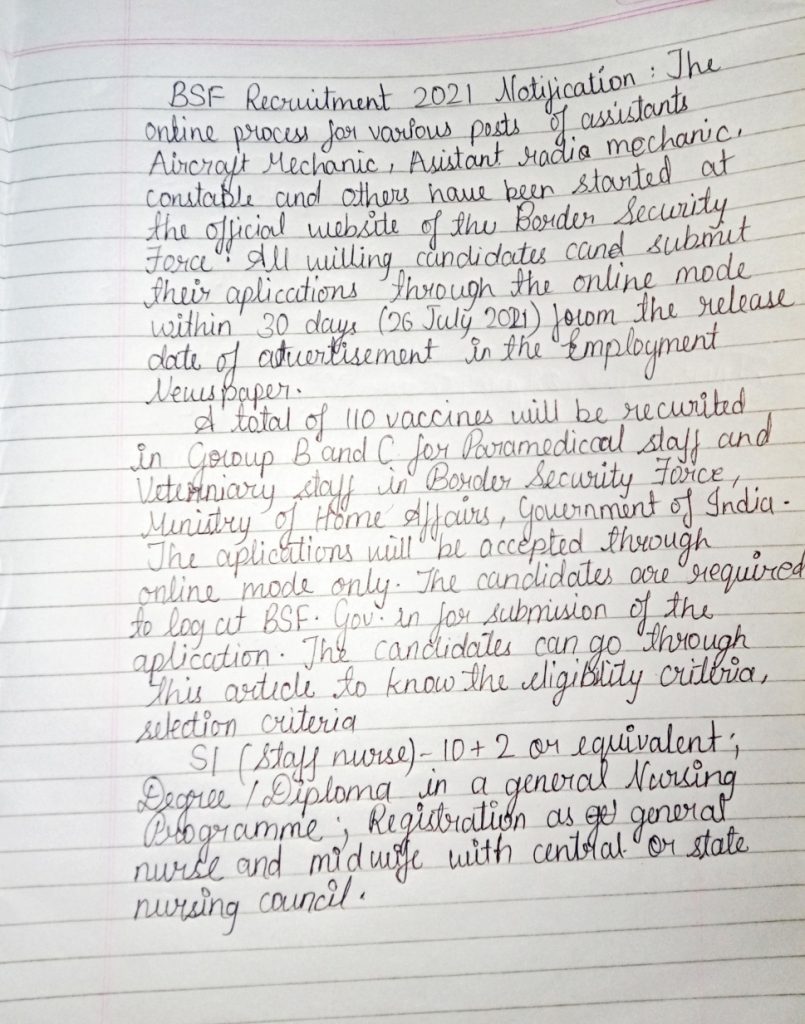 BSF Recruitment 2021 Notification : The
online process for various posts of assistants
Aircraft Mechanic, Asistant radio mechanic,
constable and others have been started at
the official website of the Border Security
Force. All willing candidates cand submit
their aplications through the online mode
within 30 days (26 July 2021) from the release
date of advertisement in the Employment
Newspaper.
A total of 110 vaccines will be recurited
in Group B and C for Paramedical staff and
Veterniary staff in Border Security Force,
Ministry of Home Affairs, Government of India.
The aplications will be accepted through
online mode only. The candidates are required
to log at BSF. Gov. in for submision of the
aplication. The candidates can go through
this article to know the eligibility criteria,
selection criteria
SI (Staff nurse) - 10 + 2 or equivalent;
Degree / Diploma in a general Nursing
Programme; Registration as general
nurse and midwife with central or state
nursing council.